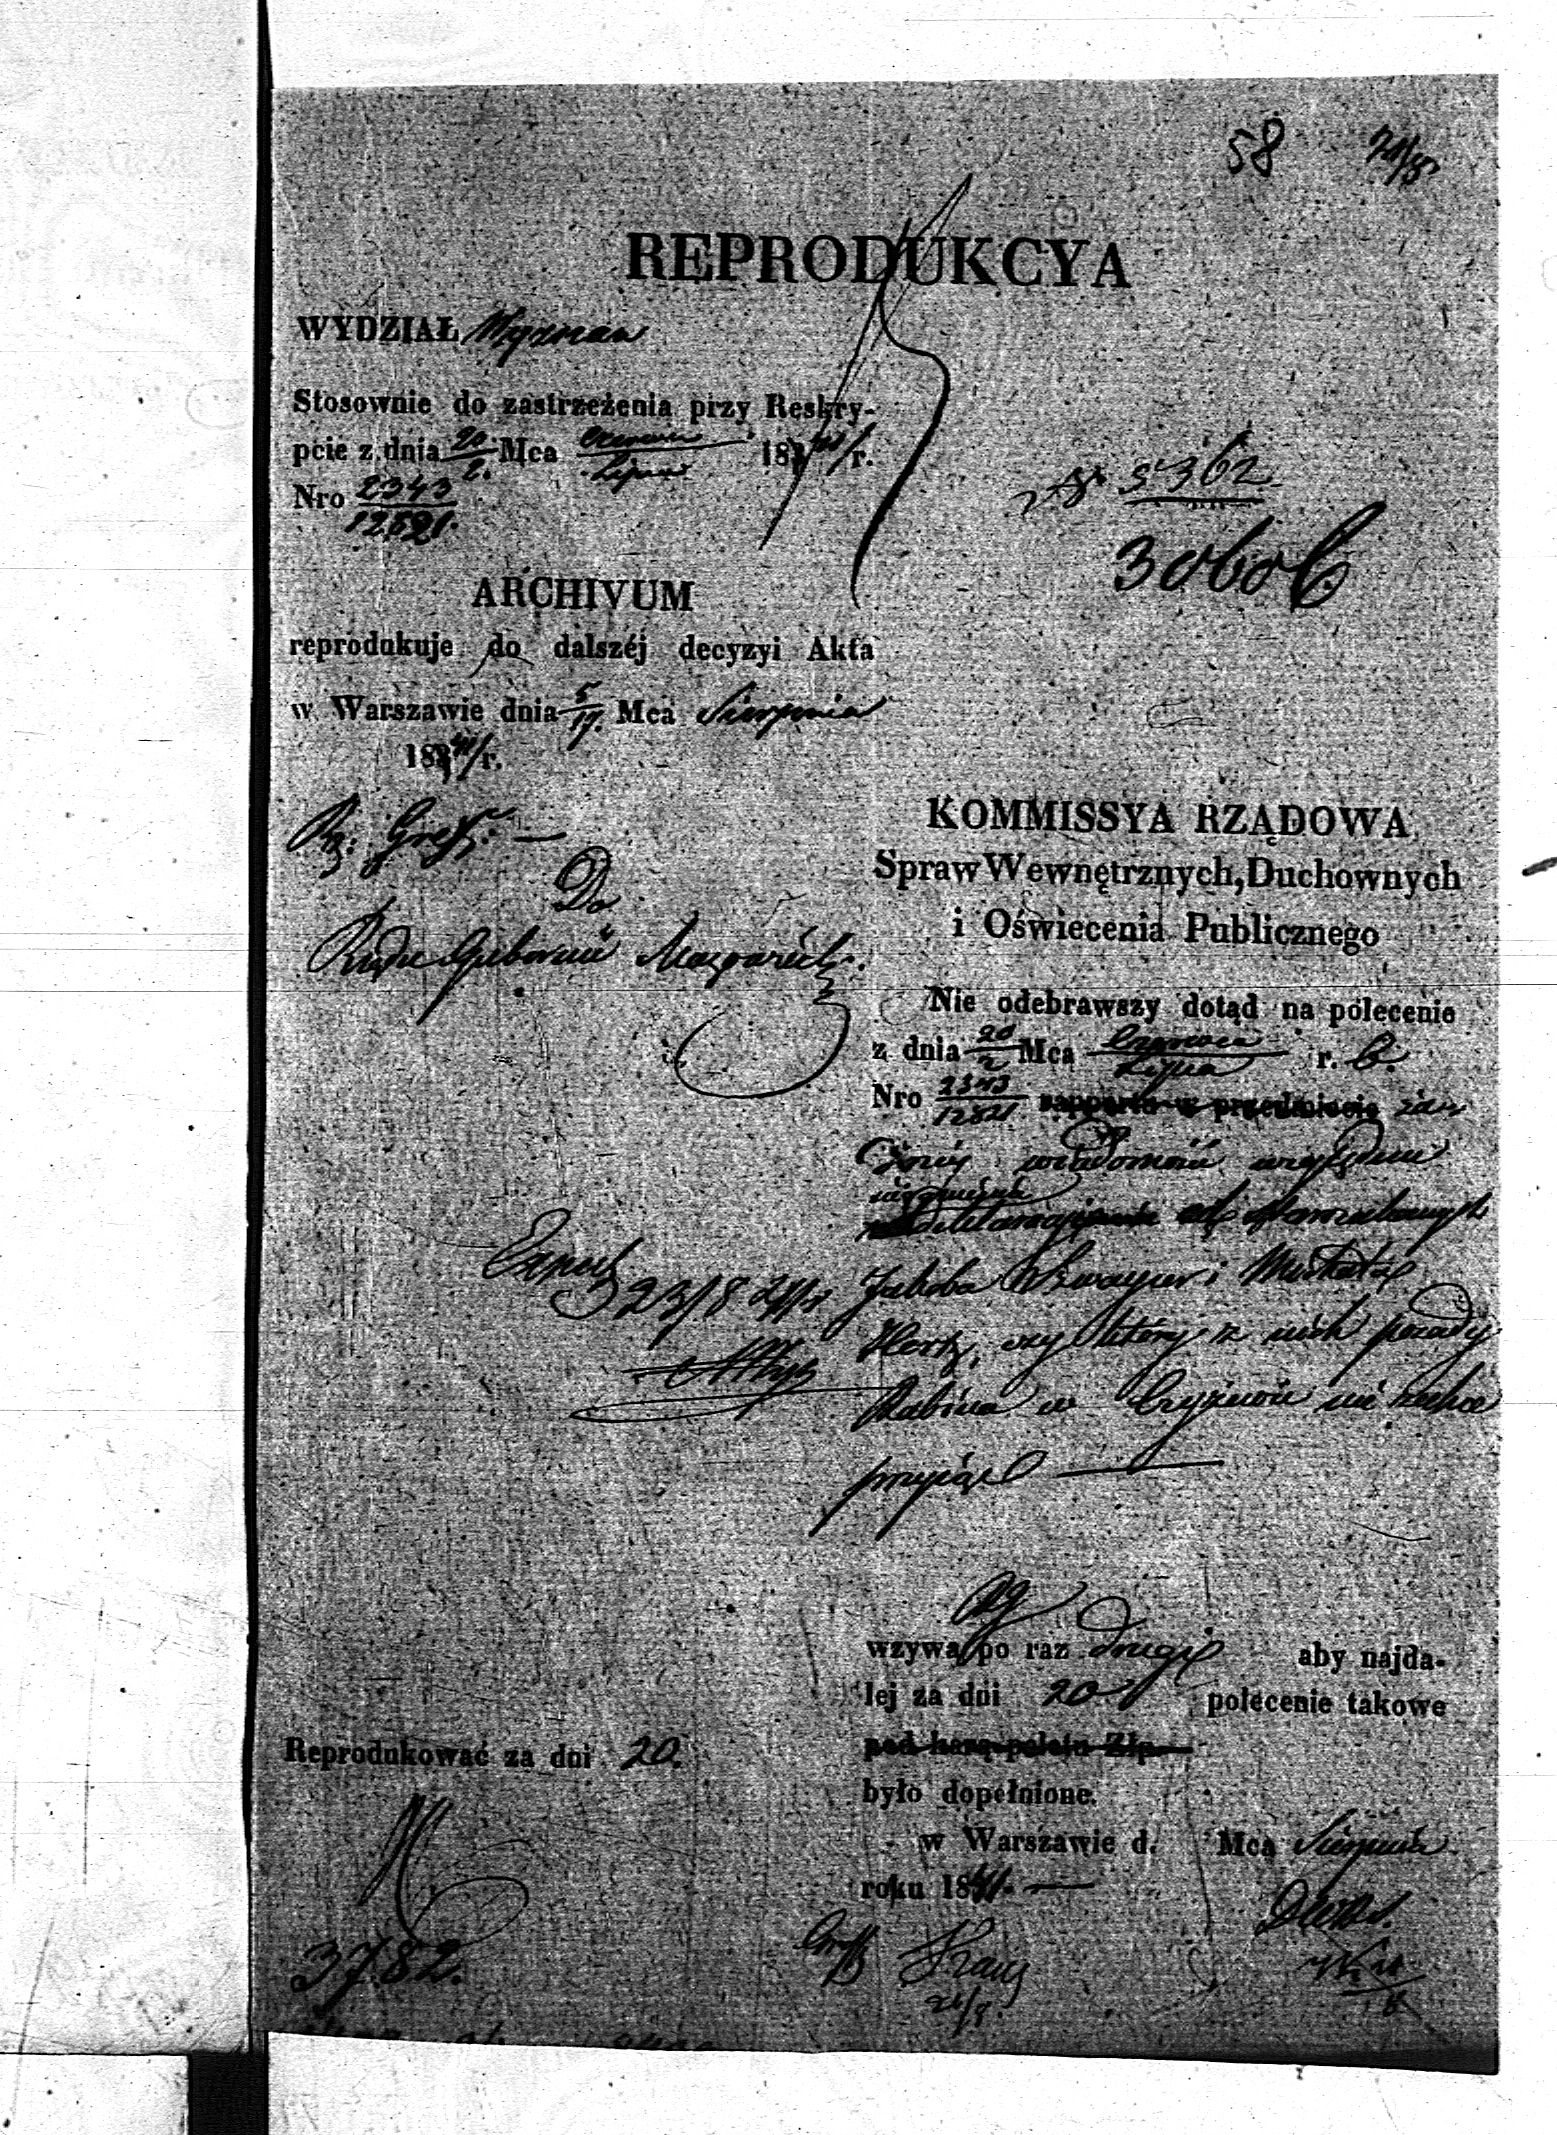 58
REPRODUKCYA
WYDZIAŁ Wyznań
Stosownie do zastrzeżenia przy Reskry-
pcie z dnia 20/2. Mca Czerwca/Lipca 1841/r.
Nro 2343/12821.
5362
3060
ARCHIVUM
reprodukuje do dalszéj decyzyi Akta
w Warszawie dnia 5/17. Mca Sierpnia
1841/r.
Do
Rządu Gubernii Mazowieck:
KOMMISSYA RZĄDOWA
Spraw Wewnętrznych, Duchownych
i Oświecenia Publicznego
Nie odebrawszy dotąd na polecenie
z dnia 20/2 Mca Czerwca/Lipca r. b.
Nro 2343/12821 rapportu w przedmiocie
wiadomość względem
Jakoba i
Hertz, czy który z nich posady
Rabina w Czyżewie nie zechce
przyjąć —
Exped
23/8 41/r
wzywa po raz drugi aby najda-
lej za dni 20 polecenie takowe
pod karą pełcia Złp.
było dopełnione.
w Warszawie d. Mca Sierpnia
roku 1841. —
Reprodukować za dni 20.
3782.